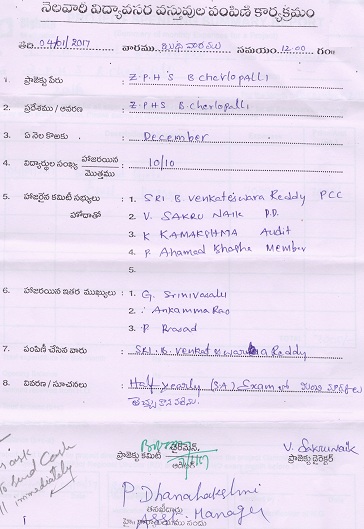 నెలవారీ విద్యావసర వస్తువుల పంపిణీ కార్యక్రమం
తేది 04/01/2017 వారము బుధవారము సమయం 12.00 గం॥
1. ప్రాజెక్టు పేరు : Z.P.H'S B cherlopalli
2. ప్రదేశము / ఆవరణ : Z.P.H.S B.cherlopalli
3. ఏ నెల కొఱకు : December
4. విద్యార్థుల సంఖ్య హాజరయిన మొత్తము : 10/10
5. హాజరైన కమిటీ సభ్యులు హోదాతో : 1. SRI B. Venkateswara Reddy PCC
2. V. SAKRU NAIK P.D.
3. K KAMAKSHMA Audit
4. P. Ahamed Bhasha Member
5.
6. హాజరయిన ఇతర ముఖ్యులు : 1. G. Srinivasalu
2. Ankamma Rao
3. P Prasad
7. పంపిణీ చేసిన వారు : SRI. B. Venkateswara Reddy
8. వివరణ / సూచనలు : Half yearly (S.A) Exam
ప్రాజెక్టు కమిటీ ఛైర్మన్,
V. Sakrunaik
ప్రాజెక్టు డైరెక్టర్
to send Cash
immediately
P. Dhanalakshmi
Asst. Manager